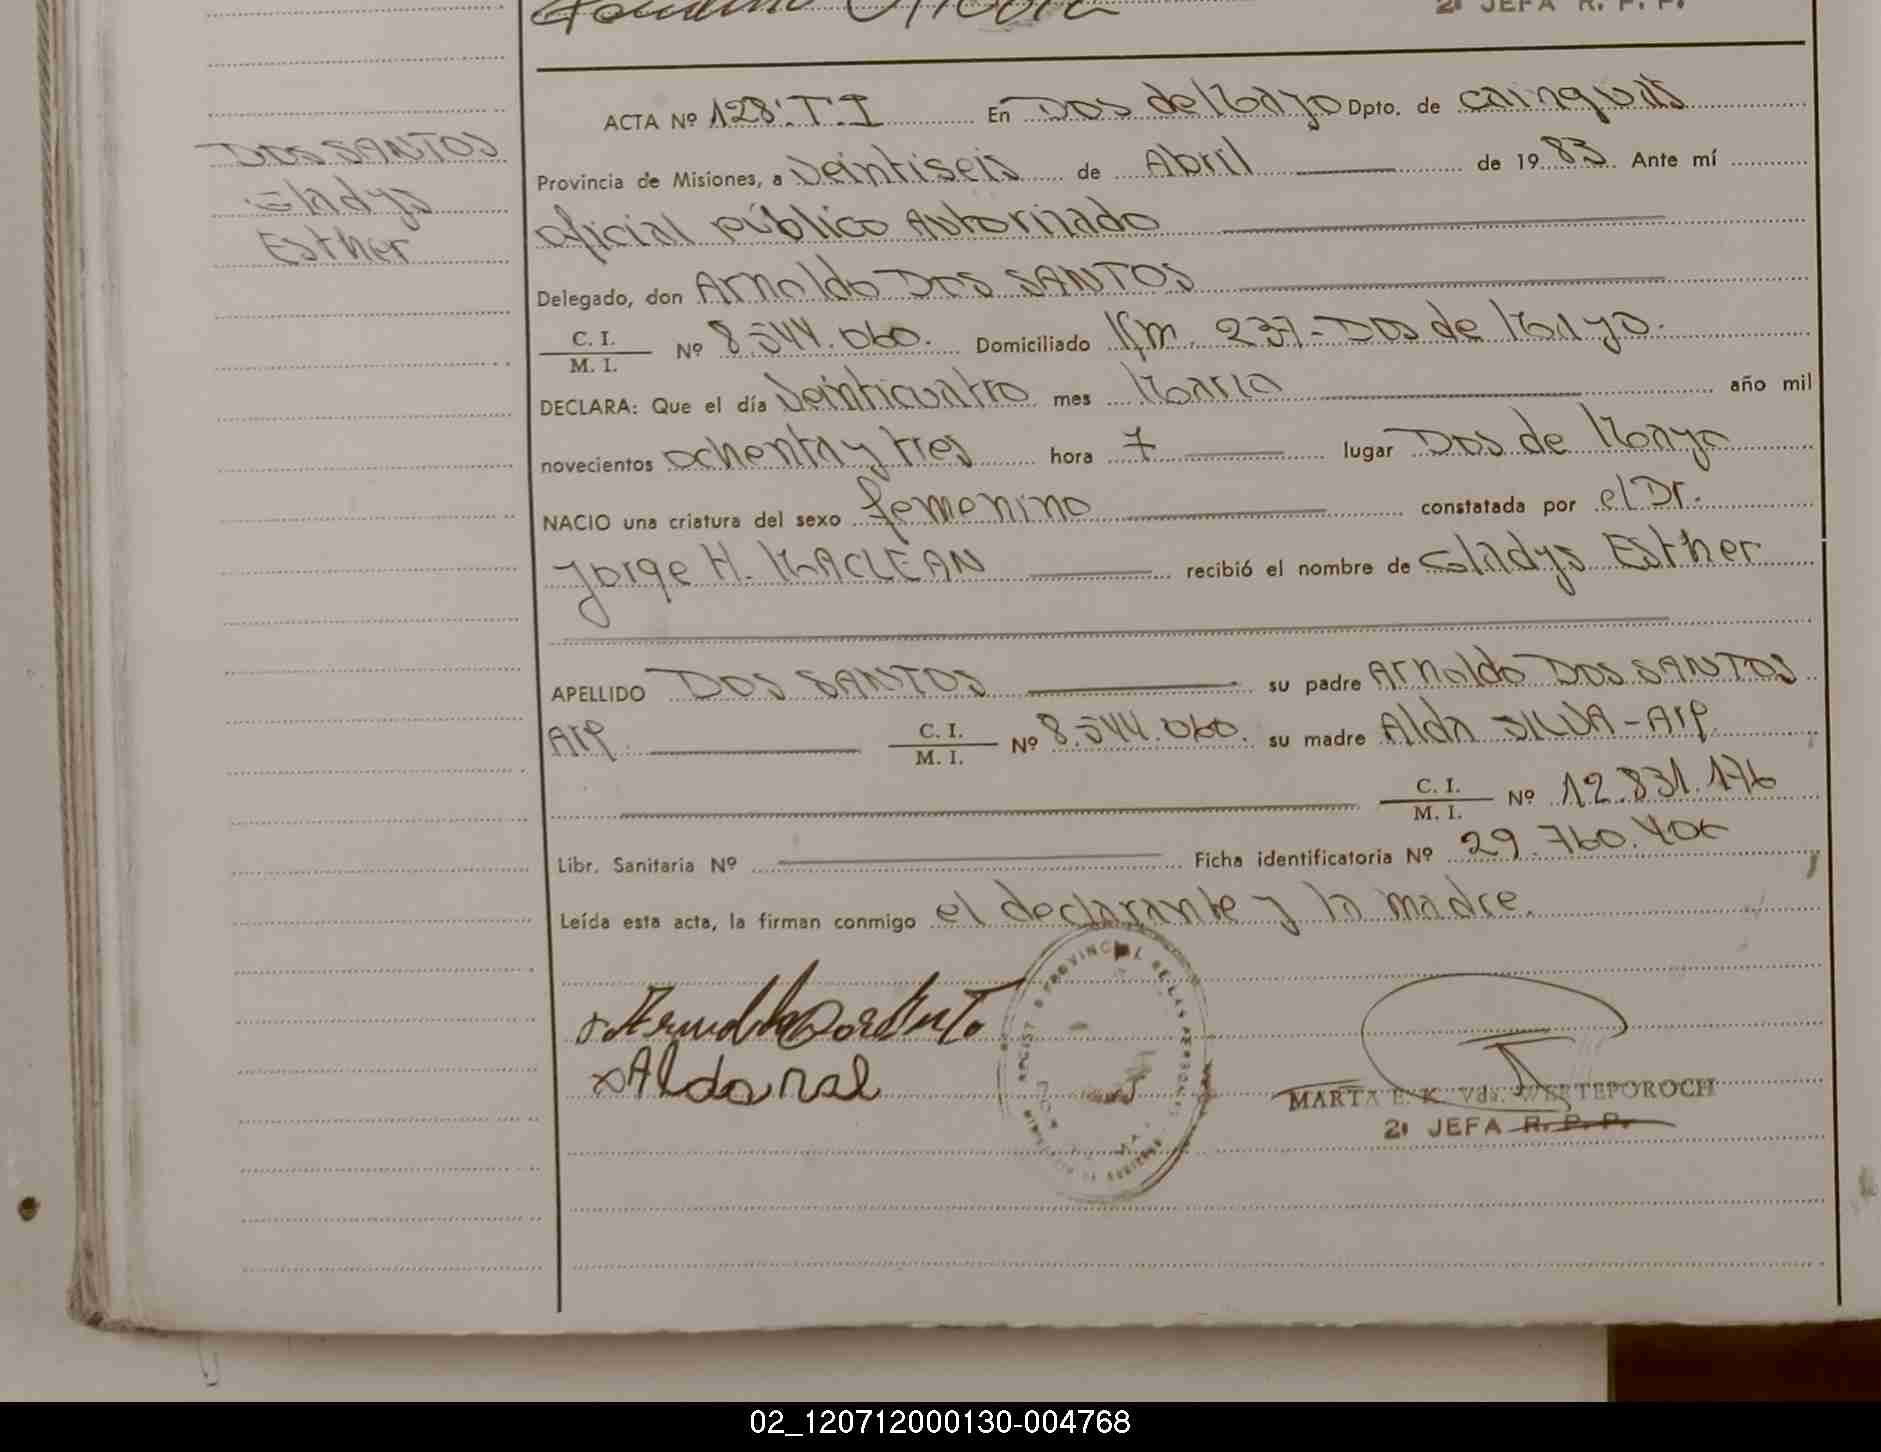 2ı JEFA R. P. P.
ACTA Nº 128. T. I En Dos de Mayo Dpto. de Cainguás
DOS SANTOS
Gladys
Esther
Provincia de Misiones, a Veintiseis de Abril de 1983 Ante mí
oficial público Autorizado
Delegado, don Arnoldo DOS SANTOS
C. I.
M. I. Nº 8.544.060. Domiciliado Km. 237-Dos de Mayo.
DECLARA: Que el día Veinticuatro mes Marzo año mil
novecientos ochenta y tres hora 7 lugar Dos de Mayo
NACIO una criatura del sexo femenino constatada por el Dr.
Jorge H. MACLEAN recibió el nombre de Gladys Esther
APELLIDO DOS SANTOS su padre Arnoldo DOS SANTOS
Arg. C. I.
M. I. Nº 8.544.060. su madre Alda SILVA-Arg.
C. I.
M. I. Nº 12.831.176
Libr. Sanitaria Nº Ficha identificatoria Nº 29.760.406
Leída esta acta, la firman conmigo el declarante y la madre.
MARTA E. K. Vda. WESTEPOROCH
2ı JEFA R. P. P.
02_120712000130-004768